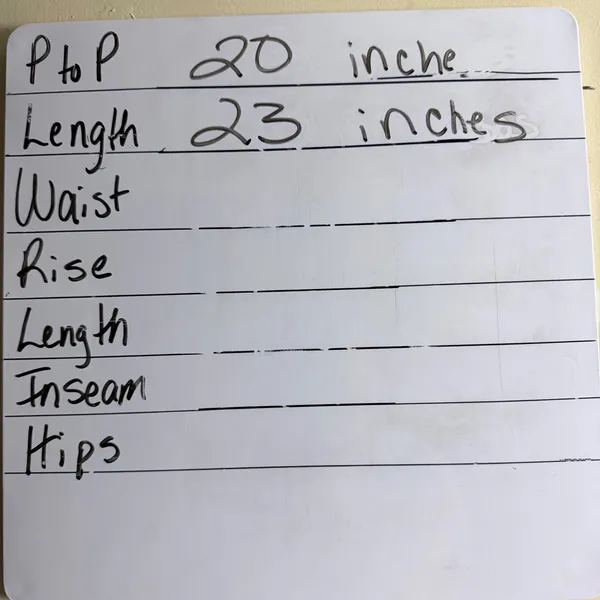 P to P 20 inche
Length 23 inches
Waist
Rise
Length
Inseam
Hips